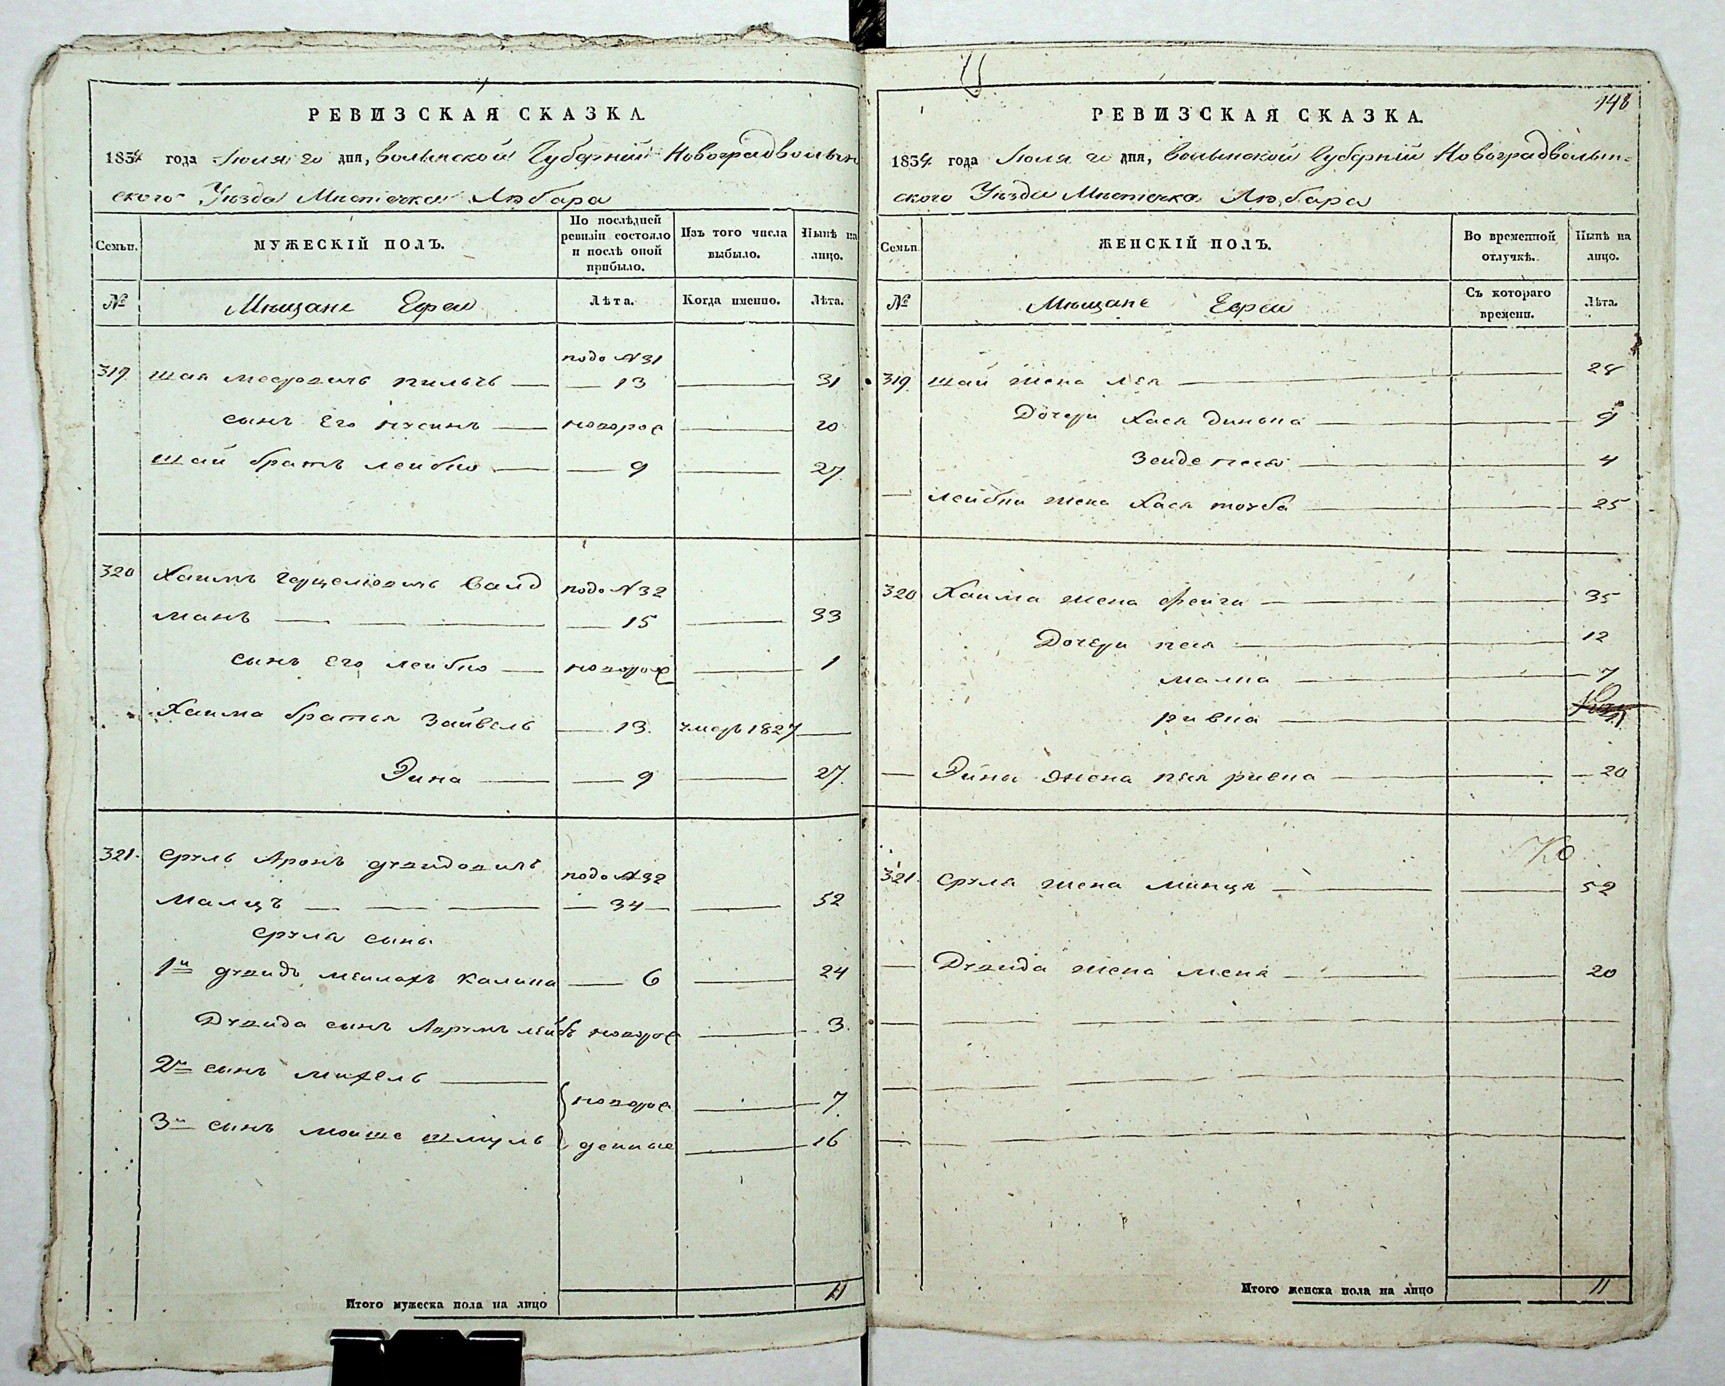 РЕВИЗСКАЯ СКАЗКА.
1834 года Июля 20 дня, Волынской Губернии Новоградволын
ского Уезда Местечка Любара
Семьи.
МУЖЕСКІЙ ПОЛЪ.
По послѣдней ревизіи состояло и послѣ оной прибыло.
Изъ того числа выбыло.
Нынѣ на лицо.
№
Мещане Евреи
Лѣта.
Когда именно.
Лѣта.
подо №31
319. Шая 13 31
сынъ его Нусинъ новорож 20
Шаи братъ Лейбио 9 27.
320 Хаимъ Герцеловичь Валд подо №32
манъ 15 33
сынъ его Лейбио новорож 1
Хаима братья Зайвель 13. умеръ 1827
Эина 9 27.
321. Сруль Аронъ Дувидовичь подо №32
Малцъ 34 52
Срула сыны
1й Дувидъ Меилахъ Калина 6 24
Дувида сынъ Аврумъ Лейбъ новорож 3.
2й сынъ Михель новорож 7
3й сынъ Мойше Шмуль денные 16
Итого мужеска пола на лицо 11
148
РЕВИЗСКАЯ СКАЗКА.
1834 года Июля 20 дня, Волынской Губернии Новоградволын=
ского Уезда Местечка Любара
Семьи
ЖЕНСКІЙ ПОЛЪ.
Во временной отлучкѣ.
Нынѣ на лицо.
№
Мещане Евреи
Съ котораго времени.
Лѣта.
319. Шаи жена Лея 28
Дочери Хася Динька 9
Зенде Песя 4
Лейбы жена Хася Тоуба 25
320 Хаима жена Фейга 35
Дочери Песя 12
Малка 7
Ривка
Эины жена Пея Ривка 20
321. Срула жена Минця 52
Дувида жена Меня 20
Итого женска пола на лицо 11